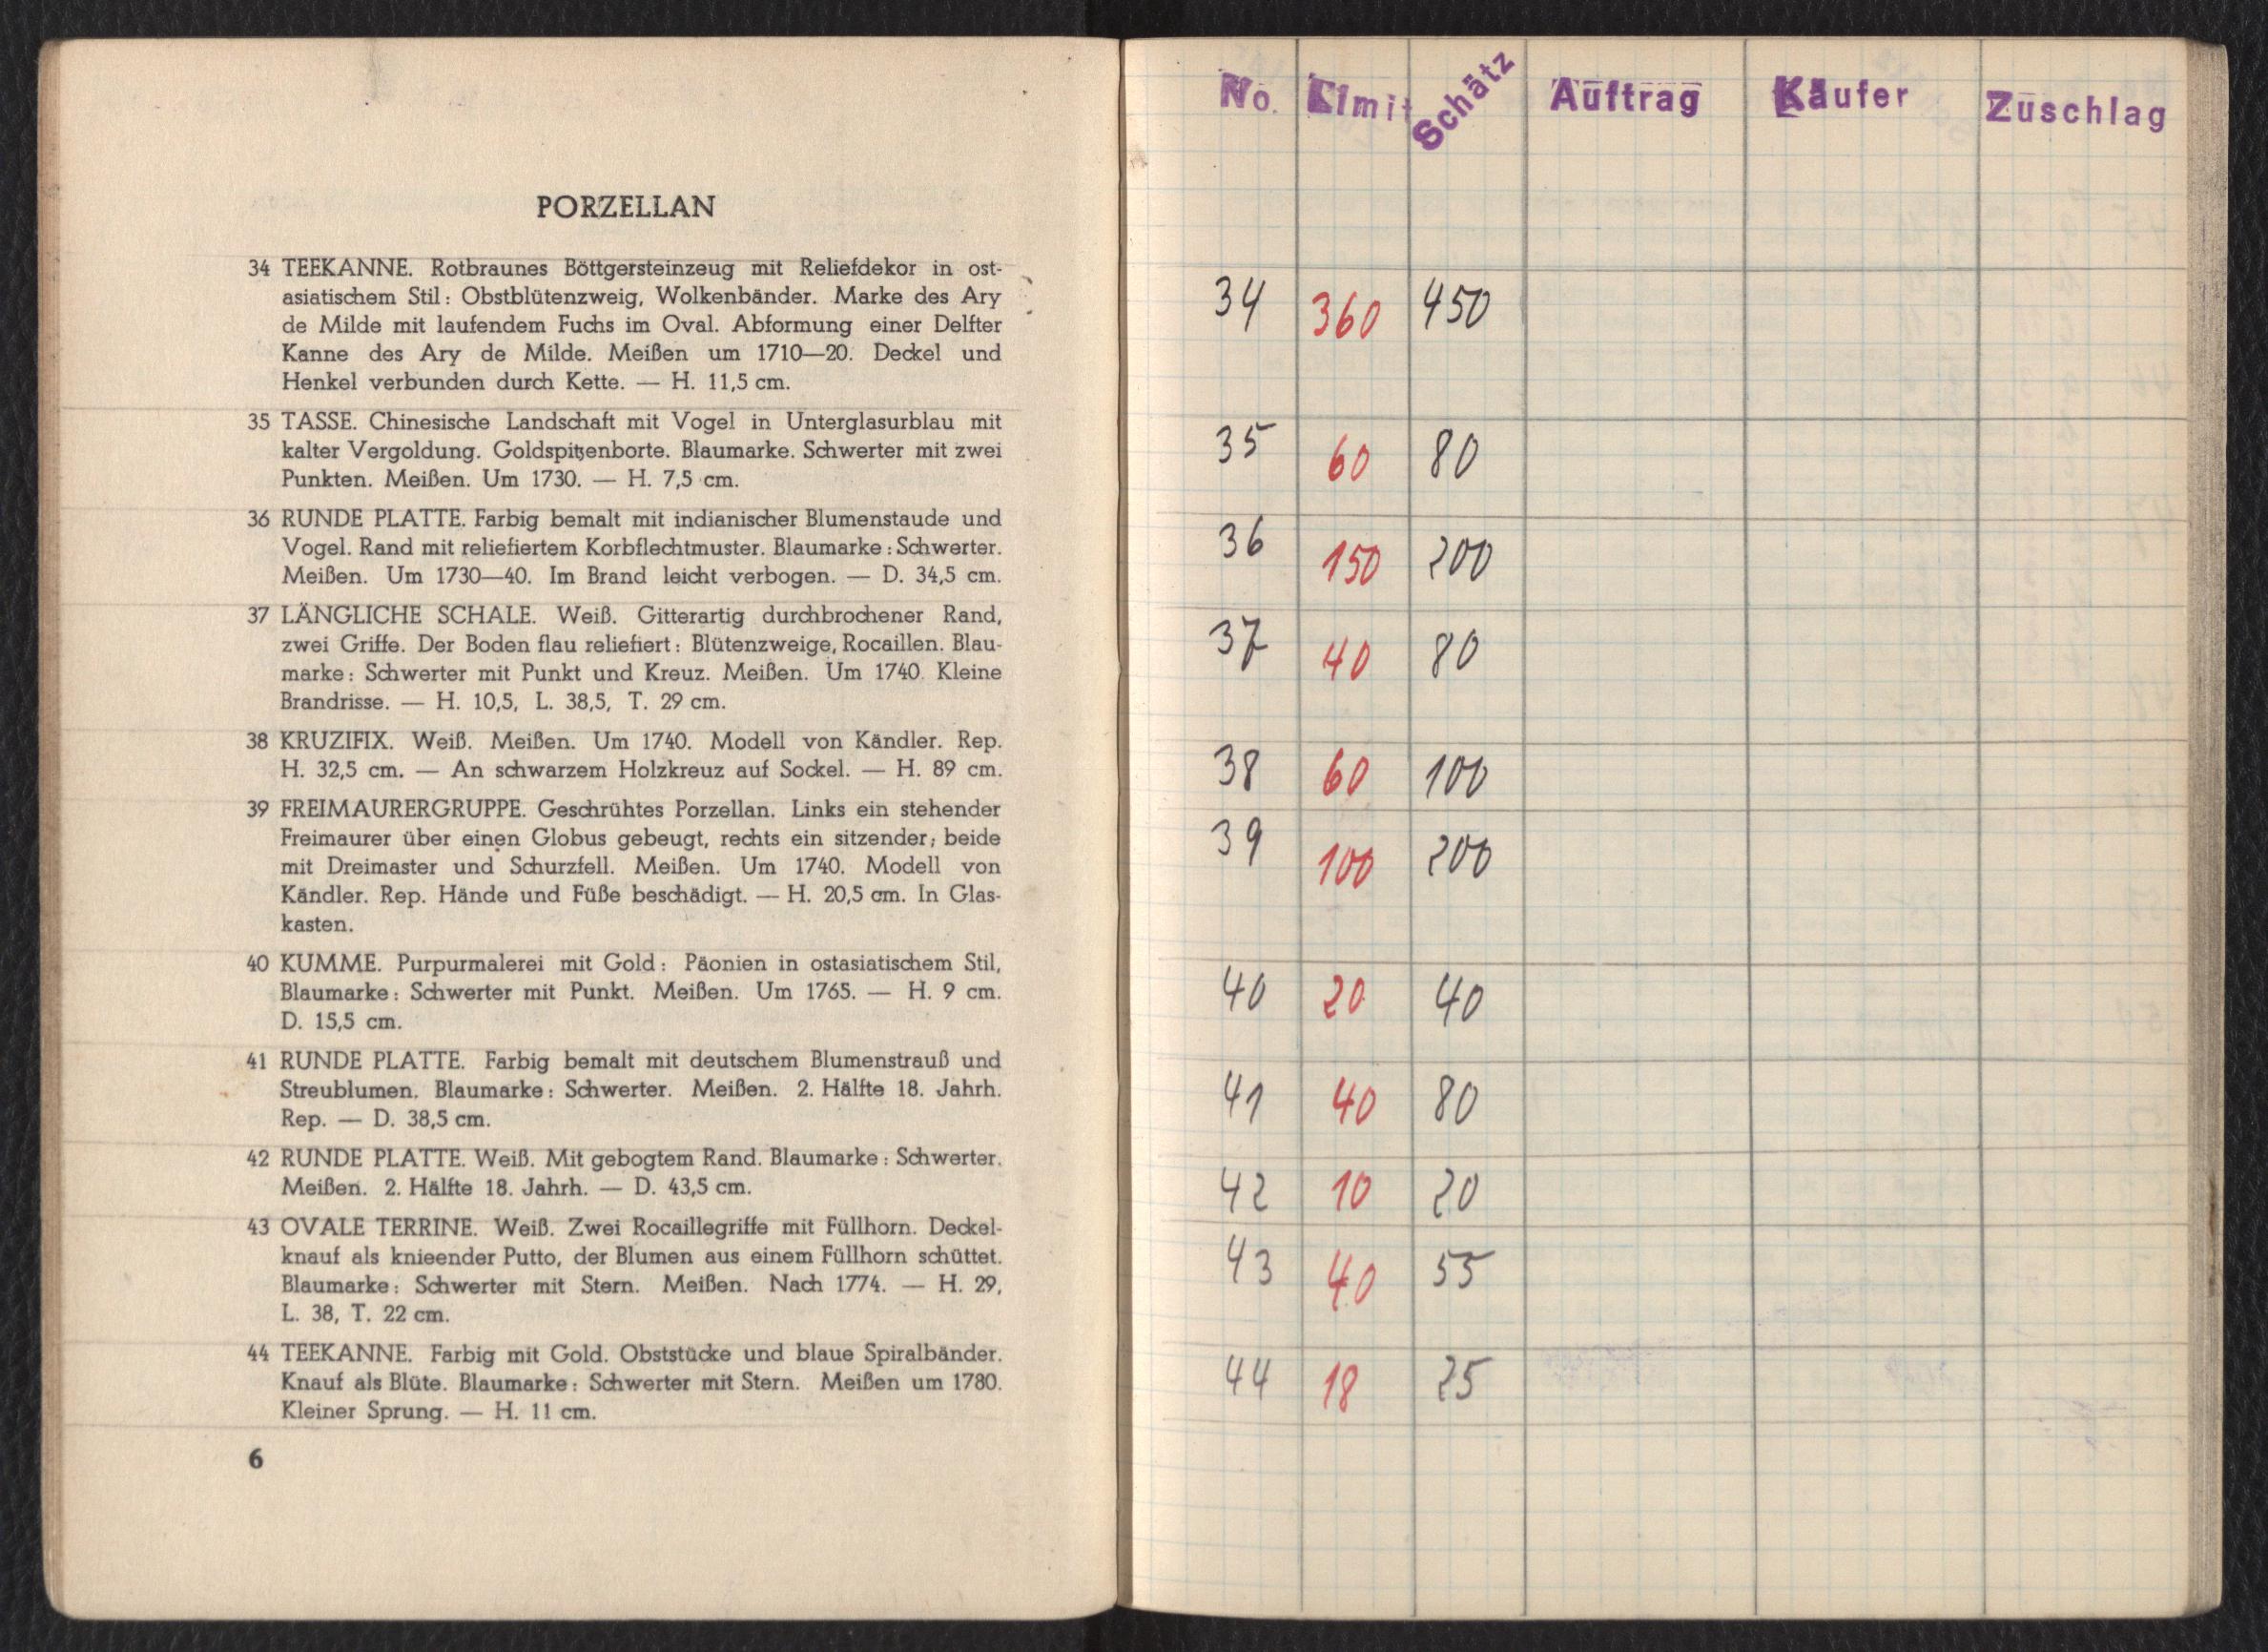 PORZELLAN
34 TEEKANNE. Rotbraunes Böttgersteinzeug mit Reliefdekor in ost-
asiatischem Stil: Obstblütenzweig, Wolkenbänder. Marke des Ary
de Milde mit laufendem Fuchs im Oval. Abformung einer Delfter
Kanne des Ary de Milde. Meißen um 1710—20. Deckel und
Henkel verbunden durch Kette. — H. 11,5 cm.
35 TASSE. Chinesische Landschaft mit Vogel in Unterglasurblau mit
kalter Vergoldung. Goldspitzenborte. Blaumarke. Schwerter mit zwei
Punkten. Meißen. Um 1730. — H. 7,5 cm.
36 RUNDE PLATTE. Farbig bemalt mit indianischer Blumenstaude und
Vogel. Rand mit reliefiertem Korbflechtmuster. Blaumarke: Schwerter.
Meißen. Um 1730—40. Im Brand leicht verbogen. — D. 34,5 cm.
37 LÄNGLICHE SCHALE. Weiß. Gitterartig durchbrochener Rand,
zwei Griffe. Der Boden flau reliefiert: Blütenzweige, Rocaillen. Blau-
marke: Schwerter mit Punkt und Kreuz. Meißen. Um 1740. Kleine
Brandrisse. — H. 10,5, L. 38,5, T. 29 cm.
38 KRUZIFIX. Weiß. Meißen. Um 1740. Modell von Kändler. Rep.
H. 32,5 cm. — An schwarzem Holzkreuz auf Sockel. — H. 89 cm.
39 FREIMAURERGRUPPE. Geschrühtes Porzellan. Links ein stehender
Freimaurer über einen Globus gebeugt, rechts ein sitzender; beide
mit Dreimaster und Schurzfell. Meißen. Um 1740. Modell von
Kändler. Rep. Hände und Füße beschädigt. — H. 20,5 cm. In Glas-
kasten.
40 KUMME. Purpurmalerei mit Gold: Päonien in ostasiatischem Stil,
Blaumarke: Schwerter mit Punkt. Meißen. Um 1765. — H. 9 cm.
D. 15,5 cm.
41 RUNDE PLATTE. Farbig bemalt mit deutschem Blumenstrauß und
Streublumen. Blaumarke: Schwerter. Meißen. 2. Hälfte 18. Jahrh.
Rep. — D. 38,5 cm.
42 RUNDE PLATTE. Weiß. Mit gebogtem Rand. Blaumarke: Schwerter.
Meißen. 2. Hälfte 18. Jahrh. — D. 43,5 cm.
43 OVALE TERRINE. Weiß. Zwei Rocaillegriffe mit Füllhorn. Deckel-
knauf als knieender Putto, der Blumen aus einem Füllhorn schüttet.
Blaumarke: Schwerter mit Stern. Meißen. Nach 1774. — H. 29,
L. 38, T. 22 cm.
44 TEEKANNE. Farbig mit Gold. Obststücke und blaue Spiralbänder.
Knauf als Blüte. Blaumarke: Schwerter mit Stern. Meißen um 1780.
Kleiner Sprung. — H. 11 cm.
6
No. Limit Schätz Auftrag Käufer Zuschlag
34 360 450
35 60 80
36 150 200
37 40 80
38 60 100
39 100 200
40 20 40
41 40 80
42 10 20
43 40 55
44 18 25